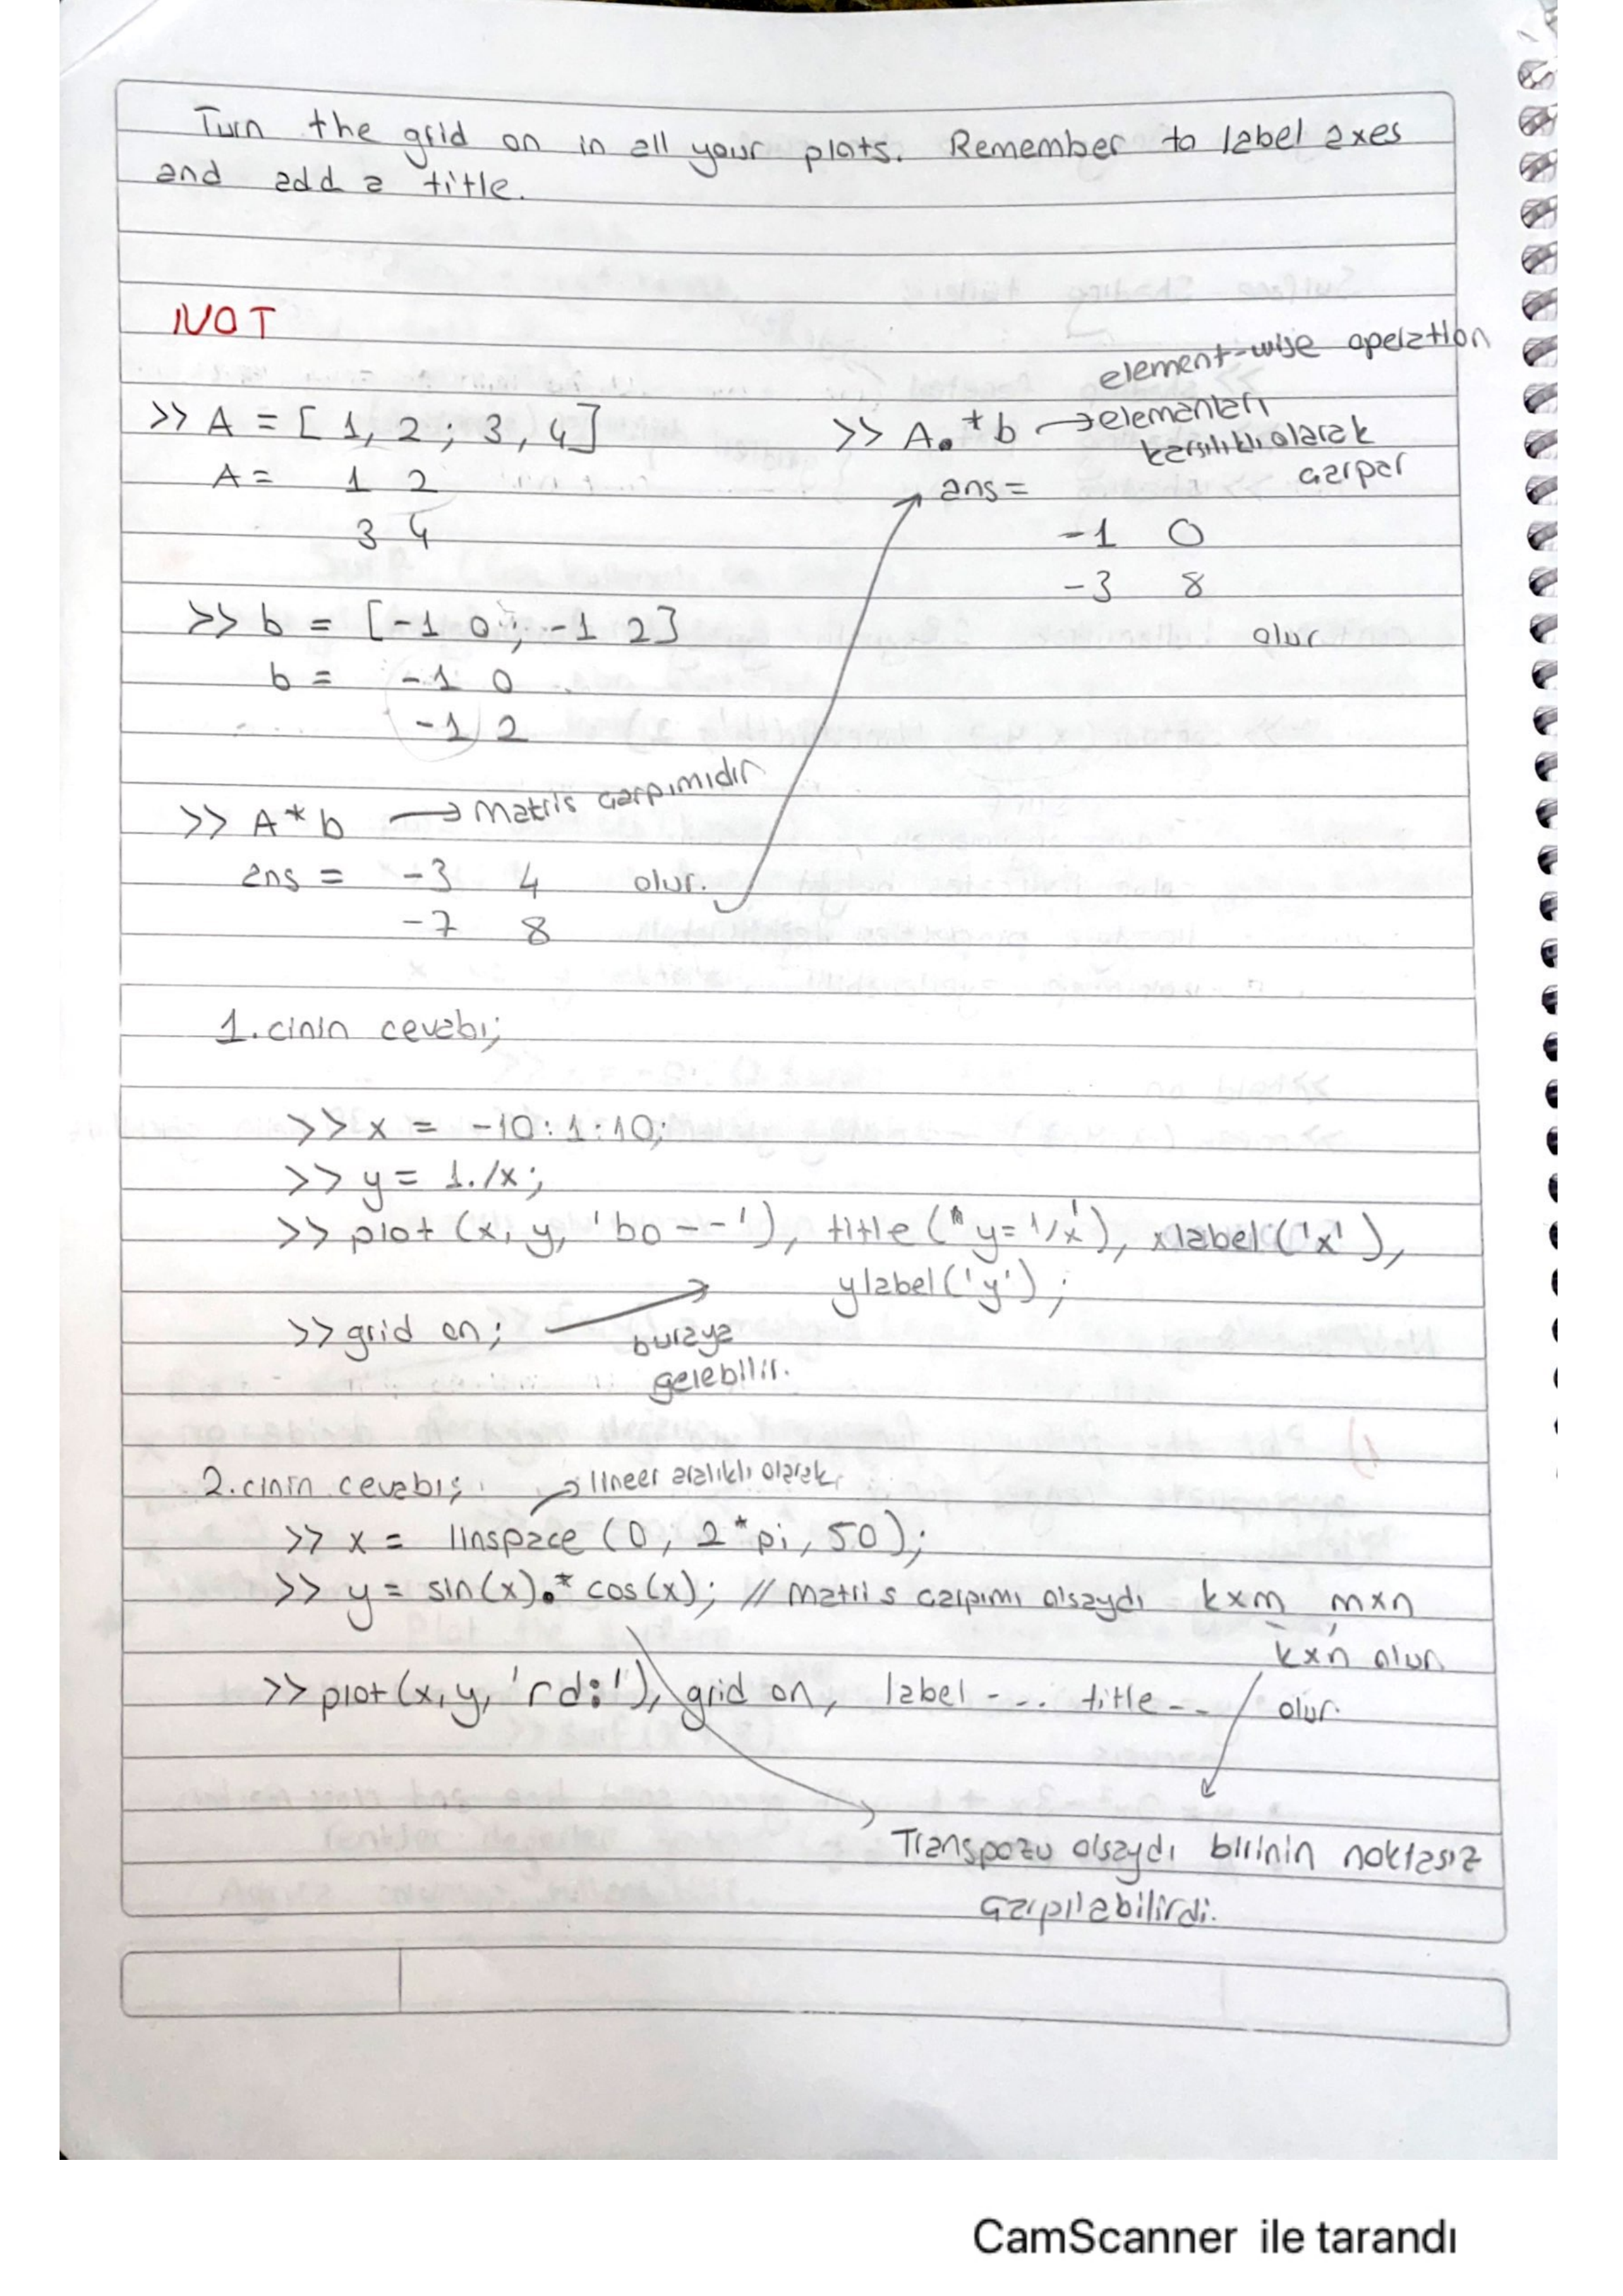 Turn the grid on in all your plots. Remember to label axes
and add a title.
NOT
>> A = [1, 2; 3, 4]
A = 1 2
3 4
>> b = [-1 0; -1 2]
b = -1 0
-1 2
>> A * b → Matris çarpımıdır
ans = -3 4 olur.
-7 8
element-wise operation
>> A.*b → elemanları
karşılıklı olarak
çarpar
ans =
-1 0
-3 8
olur
1.cinin cevabı;
>> x = -10:1:10;
>> y = 1./x;
>> plot (x, y, 'bo--'), title ('y=1/x'), xlabel('x'),
ylabel('y');
>> grid on; → buraya
gelebilir.
2.cinin cevabı; → lineer aralıklı olarak
>> x = linspace (0, 2*pi, 50);
>> y = sin(x).* cos(x); // Matris çarpımı olsaydı kxm, mxn
kxn olur
>> plot(x,y, 'rd:'), grid on, label --- title -- olur.
Transpozu olsaydı birinin noktasız
çarpılabilirdi.
CamScanner ile tarandı